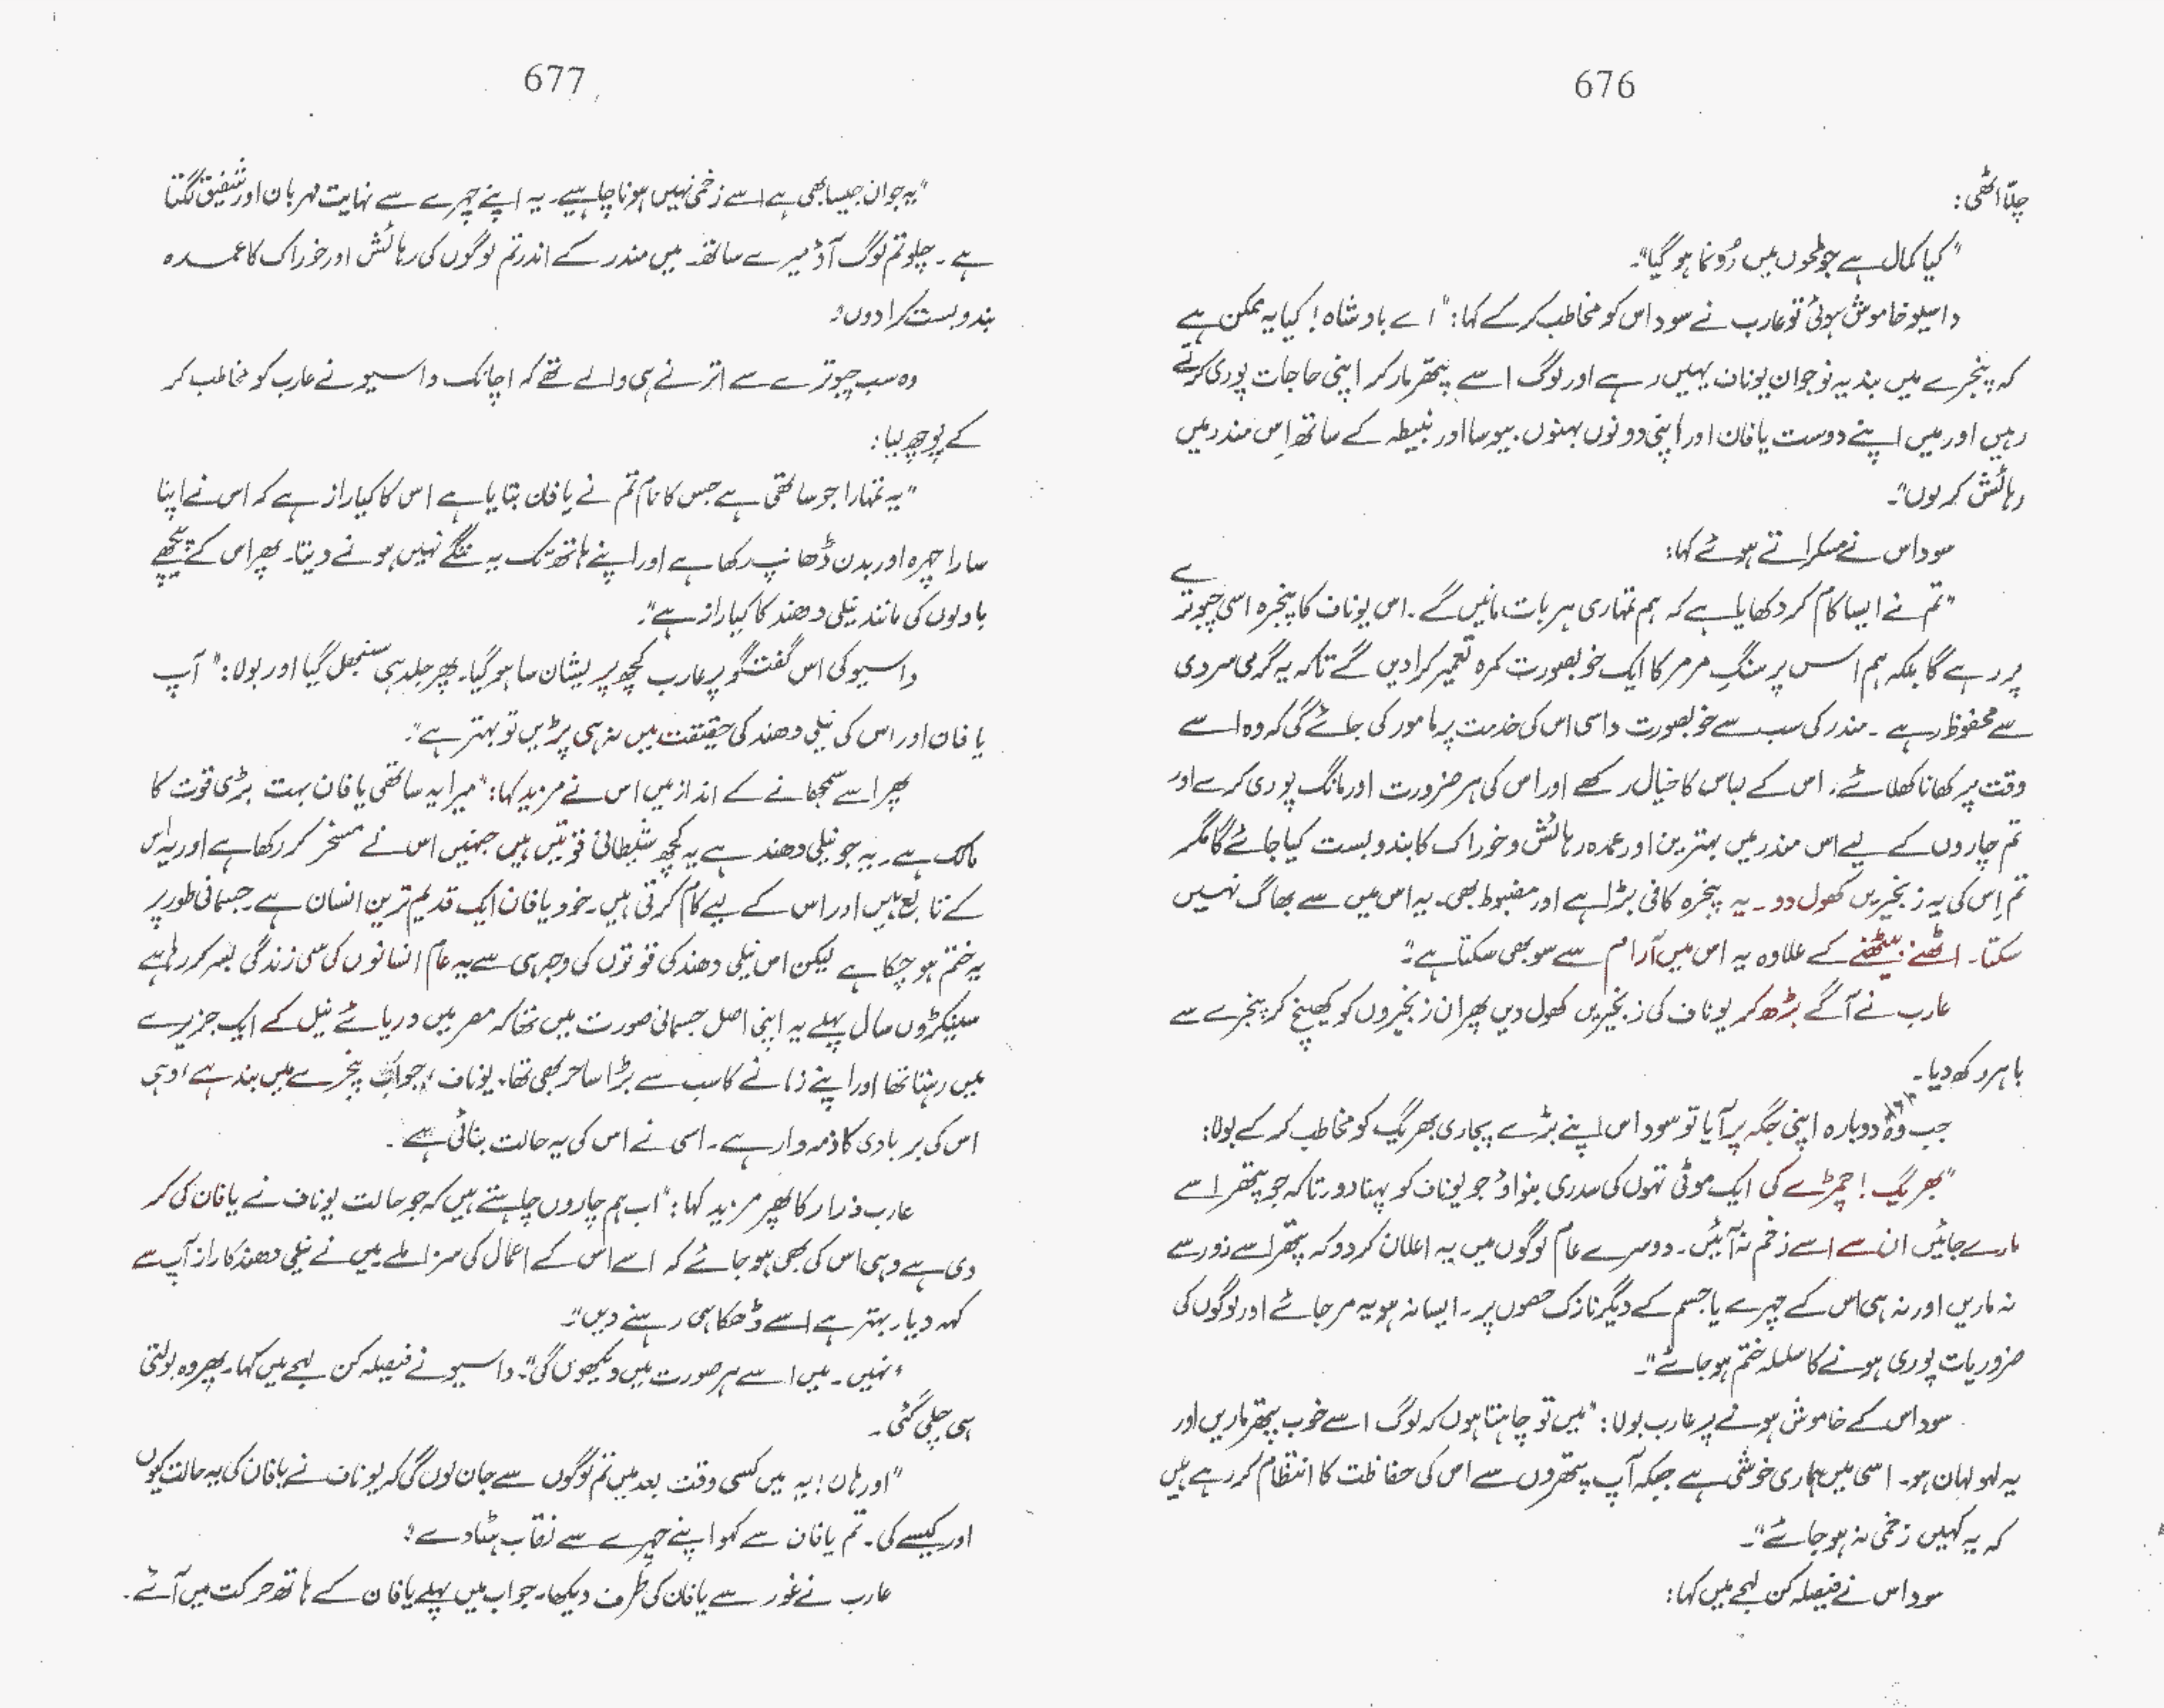 676
چلّا اٹھی:
"کیا کمال ہے جو لمحوں میں رُونما ہو گیا"۔
داسیو خاموش ہوئی تو عارب نے سوداس کو مخاطب کر کے کہا: "اے بادشاہ! کیا یہ ممکن ہے
کہ پنجرے میں بند یہ نوجوان یوناف یہیں رہے اور لوگ اسے پتھر مار کر اپنی حاجات پوری کرتے
رہیں اور میں اپنے دوست یافان اور اپنی دونوں بہنوں بیوسا اور نبیطہ کے ساتھ اِس مندر میں
رہائش کر لوں"۔
سوداس نے مسکراتے ہوئے کہا:
"تم نے ایسا کام کر دکھایا ہے کہ ہم تمہاری ہر بات مانیں گے۔ اس یوناف کا پنجرہ اسی چبوترے
پر رہے گا بلکہ ہم اس پر سنگِ مرمر کا ایک خوبصورت کمرہ تعمیر کرا دیں گے تاکہ یہ گرمی سردی
سے محفوظ رہے۔ مندر کی سب سے خوبصورت داسی اس کی خدمت پر مامور کی جائے گی کہ وہ اسے
وقت پر کھانا کھلائے، اس کے لباس کا خیال رکھے اور اس کی ہر ضرورت اور مانگ پوری کرے اور
تم چاروں کے لیے اس مندر میں بہترین اور عمدہ رہائش و خوراک کا بندوبست کیا جائے گا مگر
تم اِس کی یہ زنجیریں کھول دو۔ یہ پنجرہ کافی بڑا ہے اور مضبوط بھی۔ یہ اس میں سے بھاگ نہیں
سکتا۔ اٹھنے بیٹھنے کے علاوہ یہ اس میں آرام سے سو بھی سکتا ہے"۔
عارب نے آگے بڑھ کر یوناف کی زنجیریں کھول دیں پھر ان زنجیروں کو کھینچ کر پنجرے سے
باہر رکھ دیا۔
جب وہ دوبارہ اپنی جگہ پر آیا تو سوداس اپنے بڑے پجاری بھریگ کو مخاطب کر کے بولا:
"بھریگ! چمڑے کی ایک موٹی تہوں کی صدری بنواؤ جو یوناف کو پہنا دو تاکہ جو پتھر اسے
مارے جائیں ان سے اسے زخم نہ آئیں۔ دوسرے عام لوگوں میں یہ اعلان کر دو کہ پتھر اسے زور سے
نہ ماریں اور نہ ہی اس کے چہرے یا جسم کے دیگر نازک حصوں پر۔ ایسا نہ ہو یہ مر جائے اور لوگوں کی
ضروریات پوری ہونے کا سلسلہ ختم ہو جائے"۔
سوداس کے خاموش ہونے پر عارب بولا: "میں تو چاہتا ہوں کہ لوگ اسے خوب پتھر ماریں اور
یہ لہو لہان ہو۔ اسی میں ہماری خوشی ہے جبکہ آپ پتھروں سے اس کی حفاظت کا انتظام کر رہے ہیں
کہ یہ کہیں زخمی نہ ہو جائے"۔
سوداس نے فیصلہ کن لہجے میں کہا:
677
"یہ جوان جیسا بھی ہے اسے زخمی نہیں ہونا چاہیے۔ یہ اپنے چہرے سے نہایت مہربان اور شفیق لگتا
ہے۔ چلو تم لوگ آؤ میرے ساتھ۔ میں مندر کے اندر تم لوگوں کی رہائش اور خوراک کا عمدہ
بندوبست کرا دوں"۔
وہ سب چبوترے سے اترنے ہی والے تھے کہ اچانک داسیو نے عارب کو مخاطب کر
کے پوچھ لیا:
"یہ تمہارا جو ساتھی ہے جس کا نام تم نے یافان بتایا ہے اس کا کیا راز ہے کہ اس نے اپنا
سارا چہرہ اور بدن ڈھانپ رکھا ہے اور اپنے ہاتھ تک یہ ننگے نہیں ہونے دیتا۔ پھر اس کے پیچھے
بادلوں کی مانند نیلی دھند کا کیا راز ہے"۔
داسیو کی اس گفتگو پر عارب کچھ پریشان سا ہو گیا۔ پھر جلد ہی سنبھل گیا اور بولا: "آپ
یافان اور اس کی نیلی دھند کی حقیقت میں نہ ہی پڑیں تو بہتر ہے"۔
پھر اسے سمجھانے کے انداز میں اس نے مزید کہا: "میرا یہ ساتھی یافان بہت بڑی قوت کا
مالک ہے۔ یہ جو نیلی دھند ہے یہ کچھ شیطانی قوتیں ہیں جنہیں اس نے مسخر کر رکھا ہے اور یہ اس
کے تابع ہیں اور اس کے لیے کام کرتی ہیں۔ خود یافان ایک قدیم ترین انسان ہے۔ جسمانی طور پر
یہ ختم ہو چکا ہے لیکن اس نیلی دھند کی قوتوں کی وجہ ہی سے یہ عام انسانوں کی سی زندگی بسر کر رہا ہے
سینکڑوں سال پہلے یہ اپنی اصل جسمانی صورت میں تھا کہ مصر میں دریائے نیل کے ایک جزیرے
میں رہتا تھا اور اپنے زمانے کا سب سے بڑا ساحر بھی تھا۔ یوناف، جو اب پنجرے میں بند ہے، وہی
اس کی بربادی کا ذمہ دار ہے۔ اسی نے اس کی یہ حالت بنائی ہے۔
عارب ذرا رکا پھر مزید کہا: "اب ہم چاروں چاہتے ہیں کہ جو حالت یوناف نے یافان کی کر
دی ہے وہی اس کی بھی ہو جائے کہ اسے اس کے اعمال کی سزا ملے۔ میں نے نیلی دھند کا راز آپ سے
کہہ دیا۔ بہتر ہے اسے ڈھکا ہی رہنے دیں"۔
"نہیں۔ میں اسے ہر صورت میں دیکھوں گی"۔ داسیو نے فیصلہ کن لہجے میں کہا۔ پھر وہ بولتی
ہی چلی گئی۔
"اور ہاں! یہ میں کسی وقت بعد میں تم لوگوں سے جان لوں گی کہ یوناف نے یافان کی یہ حالت کیوں
اور کیسے کی۔ تم یافان سے کہو اپنے چہرے سے نقاب ہٹا دے"۔
عارب نے غور سے یافان کی طرف دیکھا۔ جواب میں پہلے یافان کے ہاتھ حرکت میں آئے۔